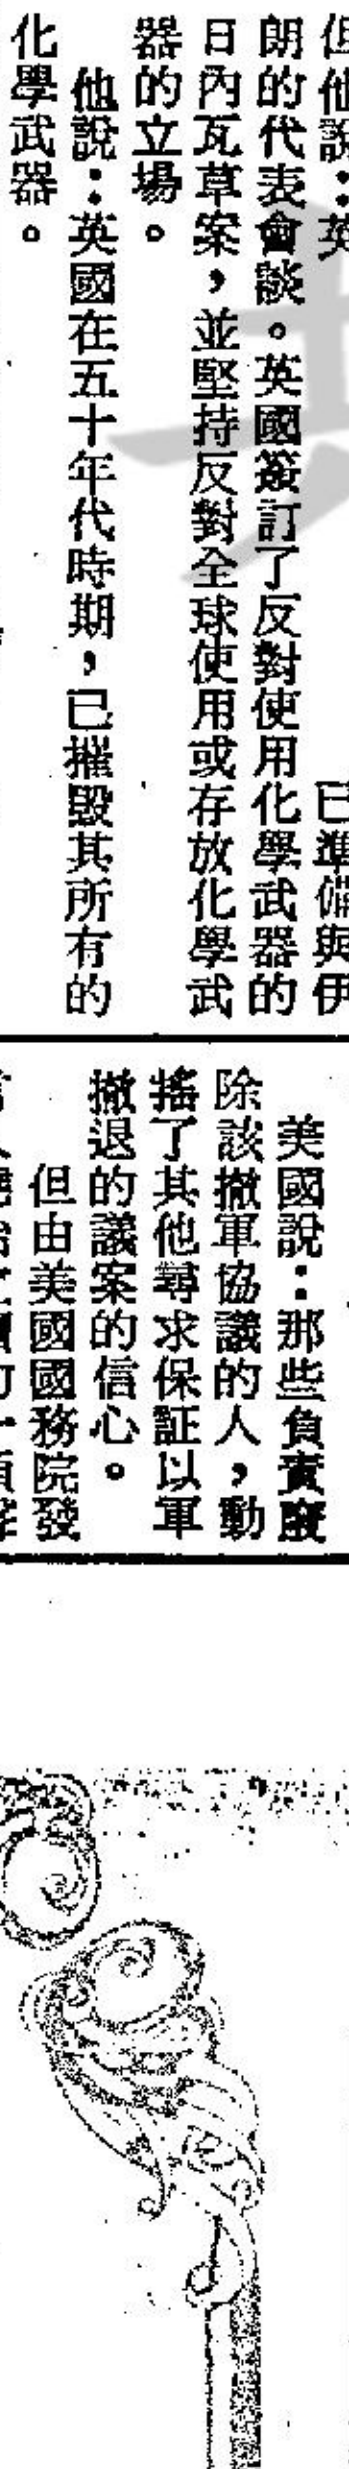 但他說：英　已準備與伊
朗的代表會談。英國簽訂了反對使用化學武器的
日內瓦草案，並堅持反對全球使用或存放化學武
器的立場。
他說：英國在五十年代時期，已摧毀其所有的
化學武器。
美國說：那些負責廢
除該撤軍協議的人，動
搖了其他尋求保証以軍
撤退的議案的信心。
但由美國國務院發